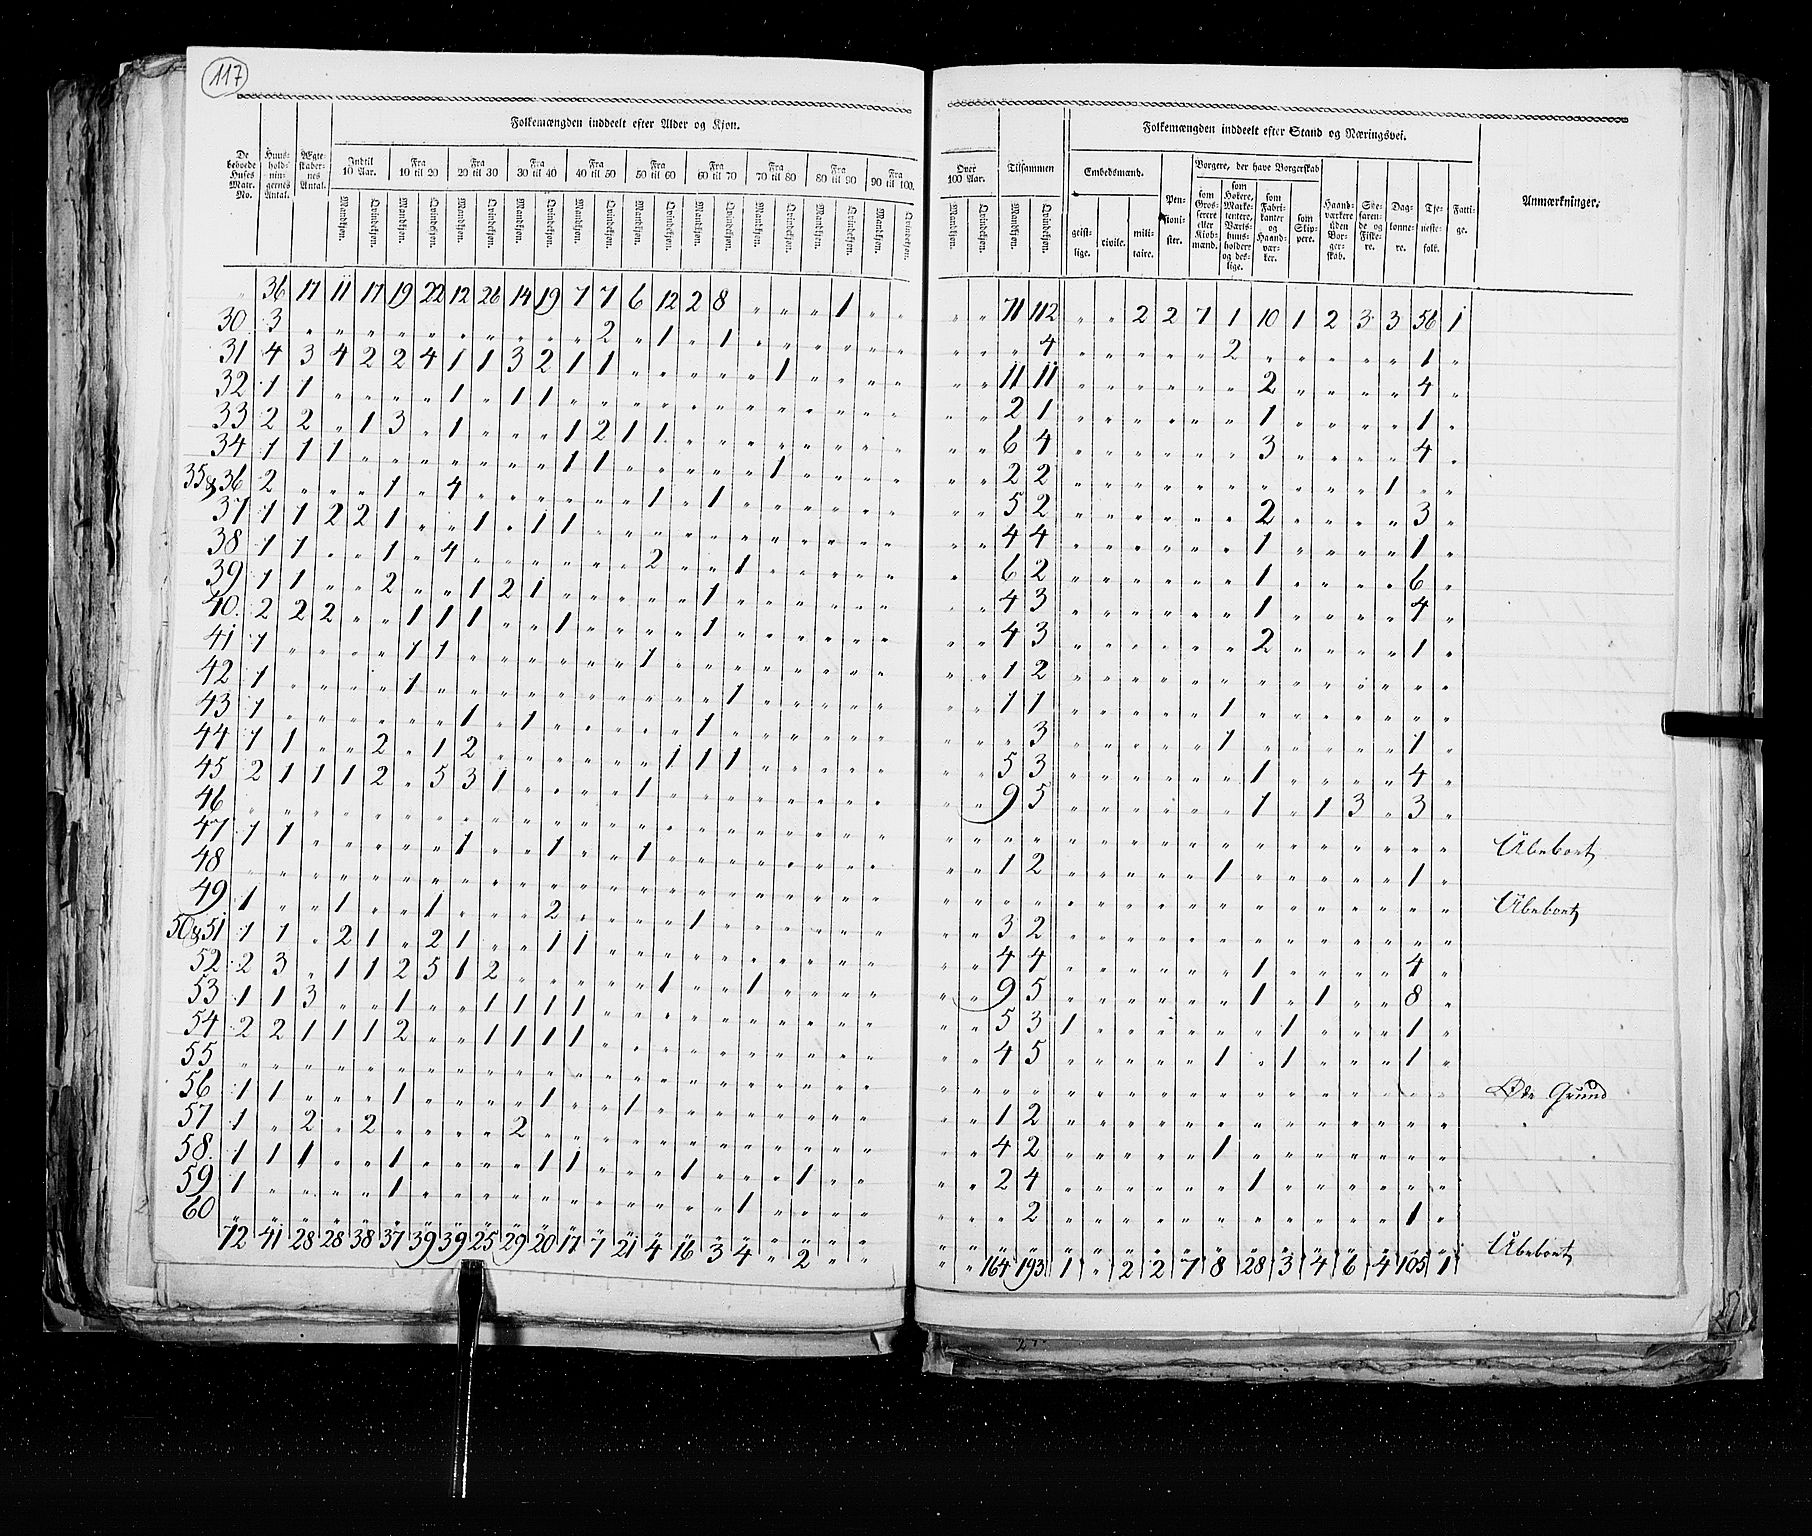 117
Folkemængden inddeelt efter Alder og Kjøn.
De beboede Huses Matr. No.
Huus-hold-nin-gernes Antal.
Ægte-skaber-nes Antal.
Indtil 10 Aar.
Fra 10 til 20
Fra 20 til 30
Fra 30 til 40
Fra 40 til 50
Fra 50 til 60
Fra 60 til 70
Fra 70 til 80
Fra 80 til 90
Fra 90 til 100.
Mandkjøn. Qvindekjøn. Mandkjøn. Qvindekjøn. Mandkjøn. Qvindekjøn. Mandkjøn. Qvindekjøn. Mandkjøn. Qvindekjøn. Mandkjøn. Qvindekjøn. Mandkjøn. Qvindekjøn. Mandkjøn. Qvindekjøn. Mandkjøn. Qvindekjøn. Mandkjøn. Qvindekjøn.
" 36 17 11 17 19 22 12 26 14 19 7 7 6 12 2 8 " " " " 1 " "
30 3 " " " " " " " " " " 2 " 1 " 1 " " " " " "
31 4 3 4 2 2 4 1 1 3 2 1 1 " " " " " 1 " " " "
32 1 1 " " " " 1 " 1 1 " " " " " " " " " " " "
33 2 2 " 1 3 " 1 " " " 1 2 1 1 " " " " " " " "
34 1 1 1 " " " " " " " 1 1 " " " " " 1 " " " "
35&36 2 " " " 1 " 4 " " " " " " 1 " 1 " " " " " "
37 1 1 2 2 1 " " 1 " 1 1 " " " " " " " " " " "
38 1 1 " " 1 " 4 " " " " " " 2 " " 1 " " " " "
39 1 1 " " 2 " " 1 2 1 " " " " " 1 " " " " " "
40. 2 2 2 " " 1 1 1 " " 1 " " " " 1 " " " " " "
41 1 " " " " 1 1 " " " " " " 1 " " " " " " " "
42 1 " " " " 1 " " " " " " " " " " 1 " " " " "
43 1 " " " " " " 1 " 1 " " " " " 1 " " " " " "
44 1 1 " " 2 " 1 2 " " " " " " 1 1 1 " " " " "
45 2 1 1 1 2 " 5 3 1 " " " " 1 " " " " " " " "
46 " " " " " " " " " " " " " " " " " " " " " "
47 1 1 " " " " " 1 " " 1 " " 1 " " " " " " " "
48 " " " " " " " " " " " " " " " " " " " " " "
49 1 " " 1 " " 1 " " " 2 " " " " 1 " " " " " "
50&51 1 1 " 2 1 " 2 1 " " 1 1 " " " " " " " " " "
52 2 3 " 1 1 2 5 1 2 " " " " " 1 " " 1 " " " "
53 1 1 3 " " 1 " " 1 1 1 1 " " " " " " " " " "
54 2 2 1 1 1 2 " " 1 1 1 1 " " " " " " " " " "
55 " " " " " " " " " " " " " " " " " " " " " "
56 1 1 " " " 1 " " " " 1 " " 1 " " " " " " " "
57 1 " 2 " 2 " " " " 2 " " " " " " " " " " " "
58. 1 1 1 " " 1 " " " " 1 1 " " " 1 " " " 1 " "
59 1 " " " " 1 " " " " " " " " " " " 1 " " " "
60 " " " " " " " " " " " " " " " " " " " " " "
72 41 28 28 38 37 39 39 25 29 20 17 7 21 4 16 3 4 " 2 " "
Folkemængden inddeelt efter Stand og Næringsvei.
Over 100 Aar.
Tilsammen
Embedsmænd.
Borgere, der have Borgerskab
Mandkjøn. Qvindekjøn. Mandkjøn. Qvindekjøn.
geist-lige.
civile.
mili-taire.
Pen-sioni-ster.
som Gros-serere eller Kiøb-mænd.
som Høkere, Marke-tentere, Værts-huus-holdere og des-lige.
som Fabri-kanter og Haand-vær-ker.
som Skip-pere.
Haand-værkere uden Bor-ger-skab.
Søe-faren-de og Fiske-re.
Dag-lønne-re.
Tje-neste-folk.
Fatti-ge.
Anmærkninger.
" " 71 112 " " 2 2 7 1 10 1 2 3 3 56 1
" " " 4 " " " " " 2 " " " " " 1 "
" " 11 11 " " " " " " 2 " " " " 4 "
" " 2 1 " " " " " " 1 " " " " 1 "
" " 6 4 " " " " " " 3 " " " " 4 "
" " 2 2 " " " " " " " " " " 1 " "
" " 5 2 " " " " " " 2 " " " " 3 "
" " 4 4 " " " " " " 1 " " " " 1 "
" " 6 2 " " " " " " 1 " " " " 6 "
" " 4 3 " " " " " " 1 " " " " 4 "
" " 4 3 " " " " " " 2 " " " " 1 "
" " 1 2 " " " " " " " " " " " " "
" " 1 1 " " " " " 1 " " " " " " "
" " " 3 " " " " " 1 " " " " " 1 "
" " 5 3 " " " " " " 1 " " " " 4 "
" " 9 5 " " " " " " 1 " 1 3 " 3 "
" " " " " " " " " " " " " " " " " Ubeboet
" " 1 2 " " " " " 1 " " " " " 1 "
" " " " " " " " " " " " " " " " " Ubeboet
" " 3 2 " " " " " " " " " " " " "
" " 4 4 " " " " " " 1 " " " " 4 "
" " 9 5 " " " " " " 1 " 1 " " 8 "
" " 5 3 1 " " " " " " 1 " " " 1 "
" " 4 5 " " " " " 1 " 1 " " " 1 "
" " " " " " " " " " " " " " " " " Øde Grund
" " 1 2 " " " " " " " " " " " " "
" " 4 2 " " " " " 1 " " " " " " "
" " 2 4 " " " " " " 1 " " " " " "
" " " 2 " " " " " " " " " " " 1 "
" " " " " " " " " " " " " " " " " Ubeboet
" " 164 193 1 " 2 2 7 8 28 3 4 6 4 105 1